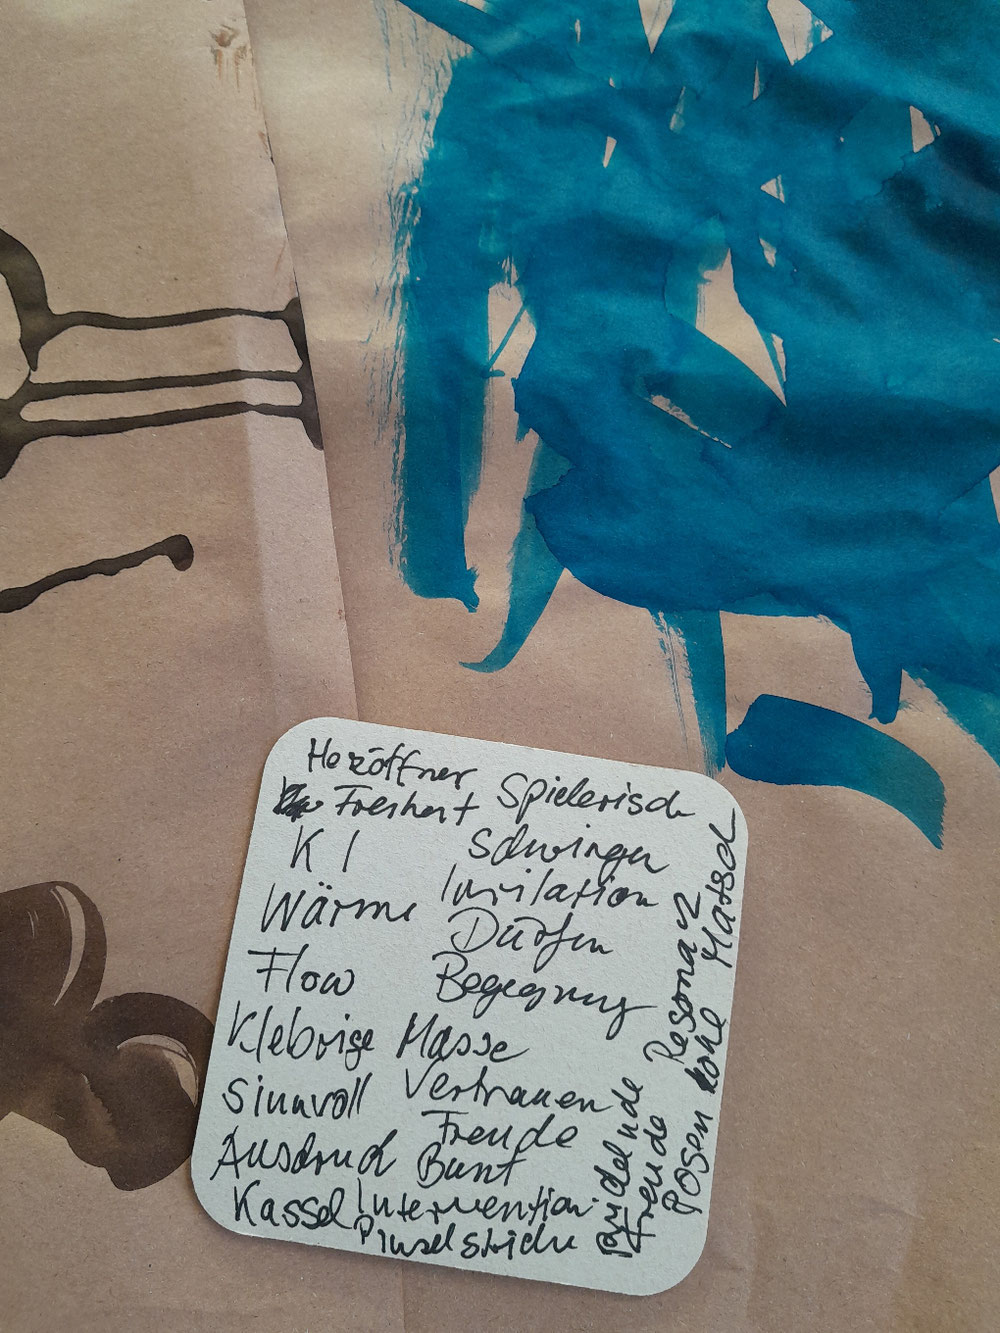 Herzöffner Spielerisch
Freiheit
KI Schwingen
Wärme
Dürfen
Flow Begegnung
Klebrige Masse
Sinnvoll Vertrauen
Freude
Ausdruck Bunt
Kassel Intervention
Pinselstriche
Freude
Resonanz
Rosenkohl Matsch